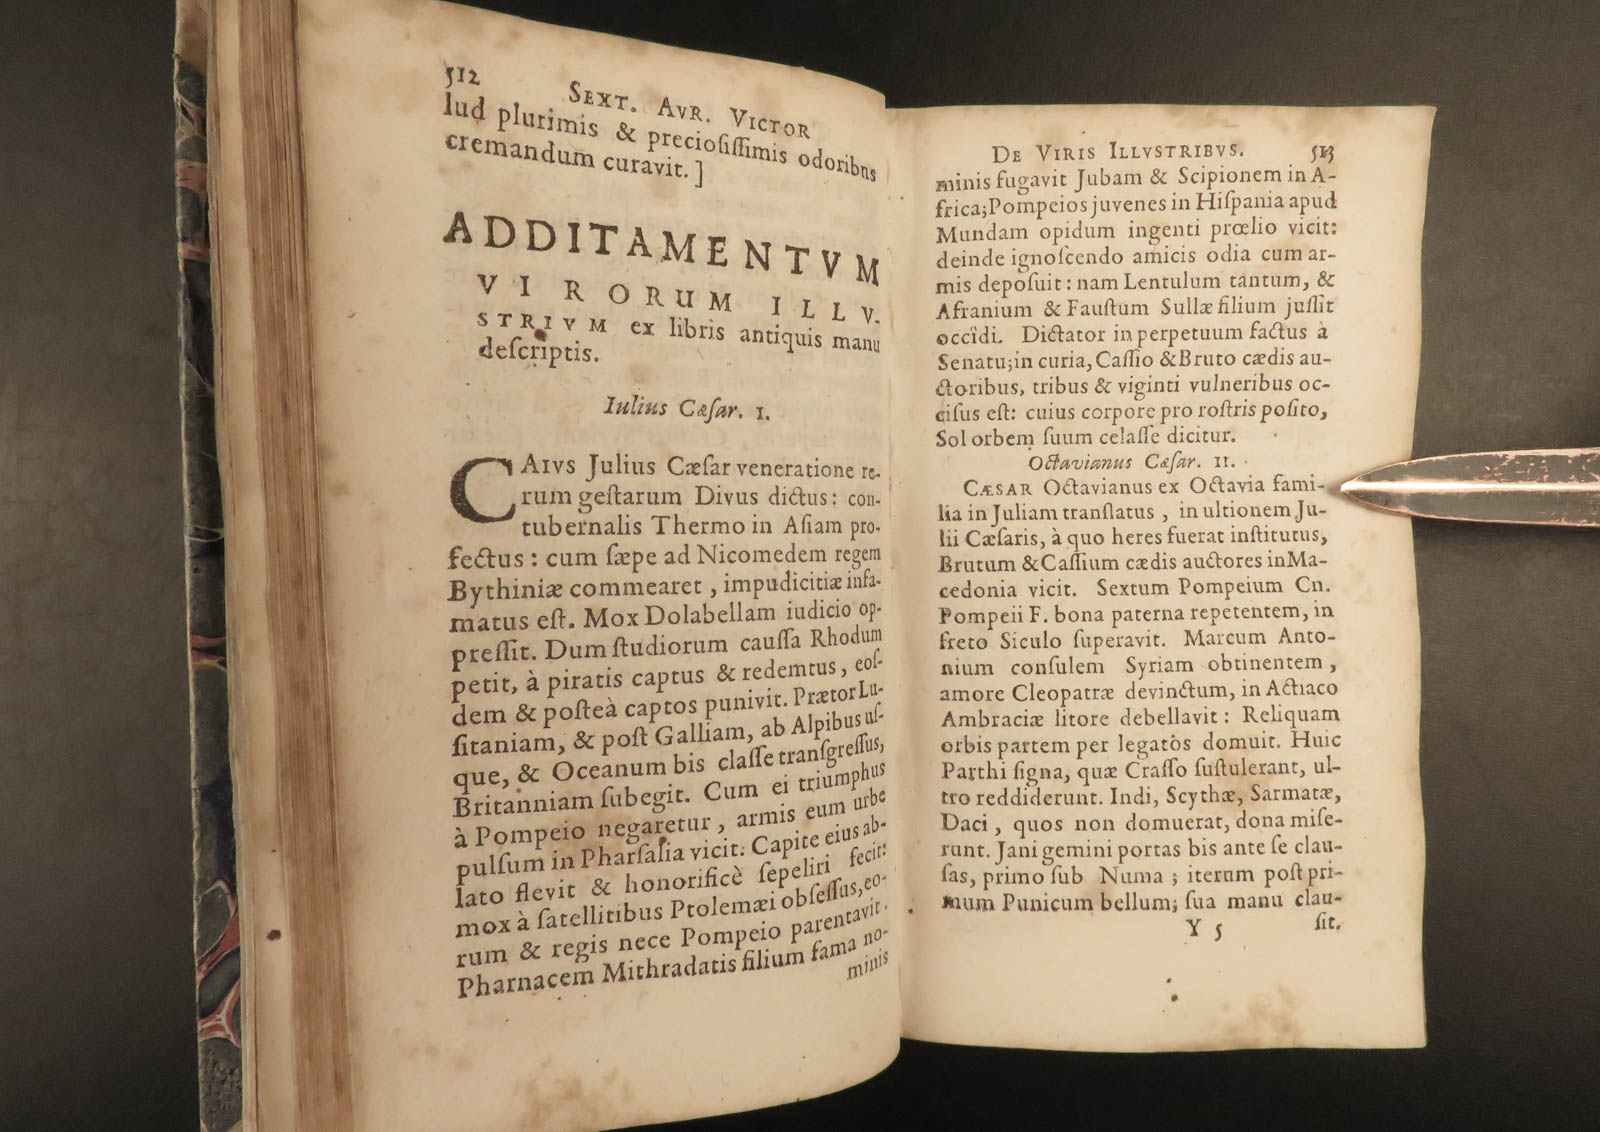 512
SEXT. AVR. VICTOR
lud plurimis & preciosissimis odoribus
cremandum curavit.]
ADDITAMENTVM
VIRORUM ILLV-
STRIVM ex libris antiquis manu
descriptis.
Iulius Cæsar. 1.
CAIVS Julius Cæsar veneratione re-
rum gestarum Divus dictus: con-
tubernalis Thermo in Asiam pro-
fectus: cum sæpe ad Nicomedem regem
Bythiniæ commearet, impudicitiæ infa-
matus est. Mox Dolabellam iudicio op-
pressit. Dum studiorum caussa Rhodum
petit, à piratis captus & redemtus, eos-
dem & posteà captos punivit. Prætor Lu-
sitaniam, & post Galliam, ab Alpibus us-
que, & Oceanum bis classe transgressus,
Britanniam subegit. Cum ei triumphus
à Pompeio negaretur, armis eum urbe
pulsum in Pharsalia vicit. Capite eius ab-
lato flevit & honorificè sepeliri fecit:
mox à satellitibus Ptolemæi obsessus, eo-
rum & regis nece Pompeio parentavit.
Pharnacem Mithradatis filium fama no-
minis
DE VIRIS ILLVSTRIBVS. 513
minis fugavit Jubam & Scipionem in A-
frica; Pompeios juvenes in Hispania apud
Mundam opidum ingenti prœlio vicit:
deinde ignoscendo amicis odia cum ar-
mis deposuit: nam Lentulum tantum, &
Afranium & Faustum Sullæ filium jussit
occîdi. Dictator in perpetuum factus à
Senatu; in curia, Cassio & Bruto cædis au-
ctoribus, tribus & viginti vulneribus oc-
cisus est: cuius corpore pro rostris posito,
Sol orbem suum celasse dicitur.
Octavianus Cæsar. 11.
CÆSAR Octavianus ex Octavia fami-
lia in Juliam translatus, in ultionem Ju-
lii Cæsaris, à quo heres fuerat institutus,
Brutum & Cassium cædis auctores in Ma-
cedonia vicit. Sextum Pompeium Cn.
Pompeii F. bona paterna repetentem, in
freto Siculo superavit. Marcum Anto-
nium consulem Syriam obtinentem,
amore Cleopatræ devinctum, in Actiaco
Ambraciæ litore debellavit: Reliquam
orbis partem per legatos domuit. Huic
Parthi signa, quæ Crasso sustulerant, ul-
tro reddiderunt. Indi, Scythæ, Sarmatæ,
Daci, quos non domuerat, dona mise-
runt. Jani gemini portas bis ante se clau-
sas, primo sub Numa; iterum post pri-
mum Punicum bellum; sua manu clau-
Y 5 sit.